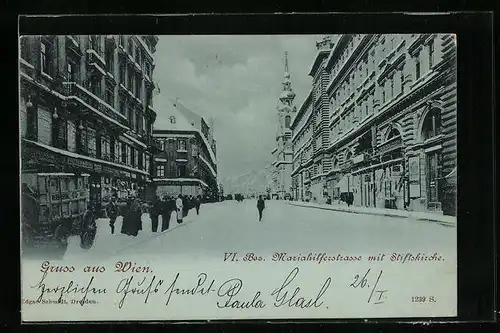 Gruss aus Wien.
VI. Bez. Mariahilferstrasse mit Stiftskirche.
Edgar Schmidt, Dresden.
Herzlichen Gruß sendet Paula Glasl 26/I
1239 S.